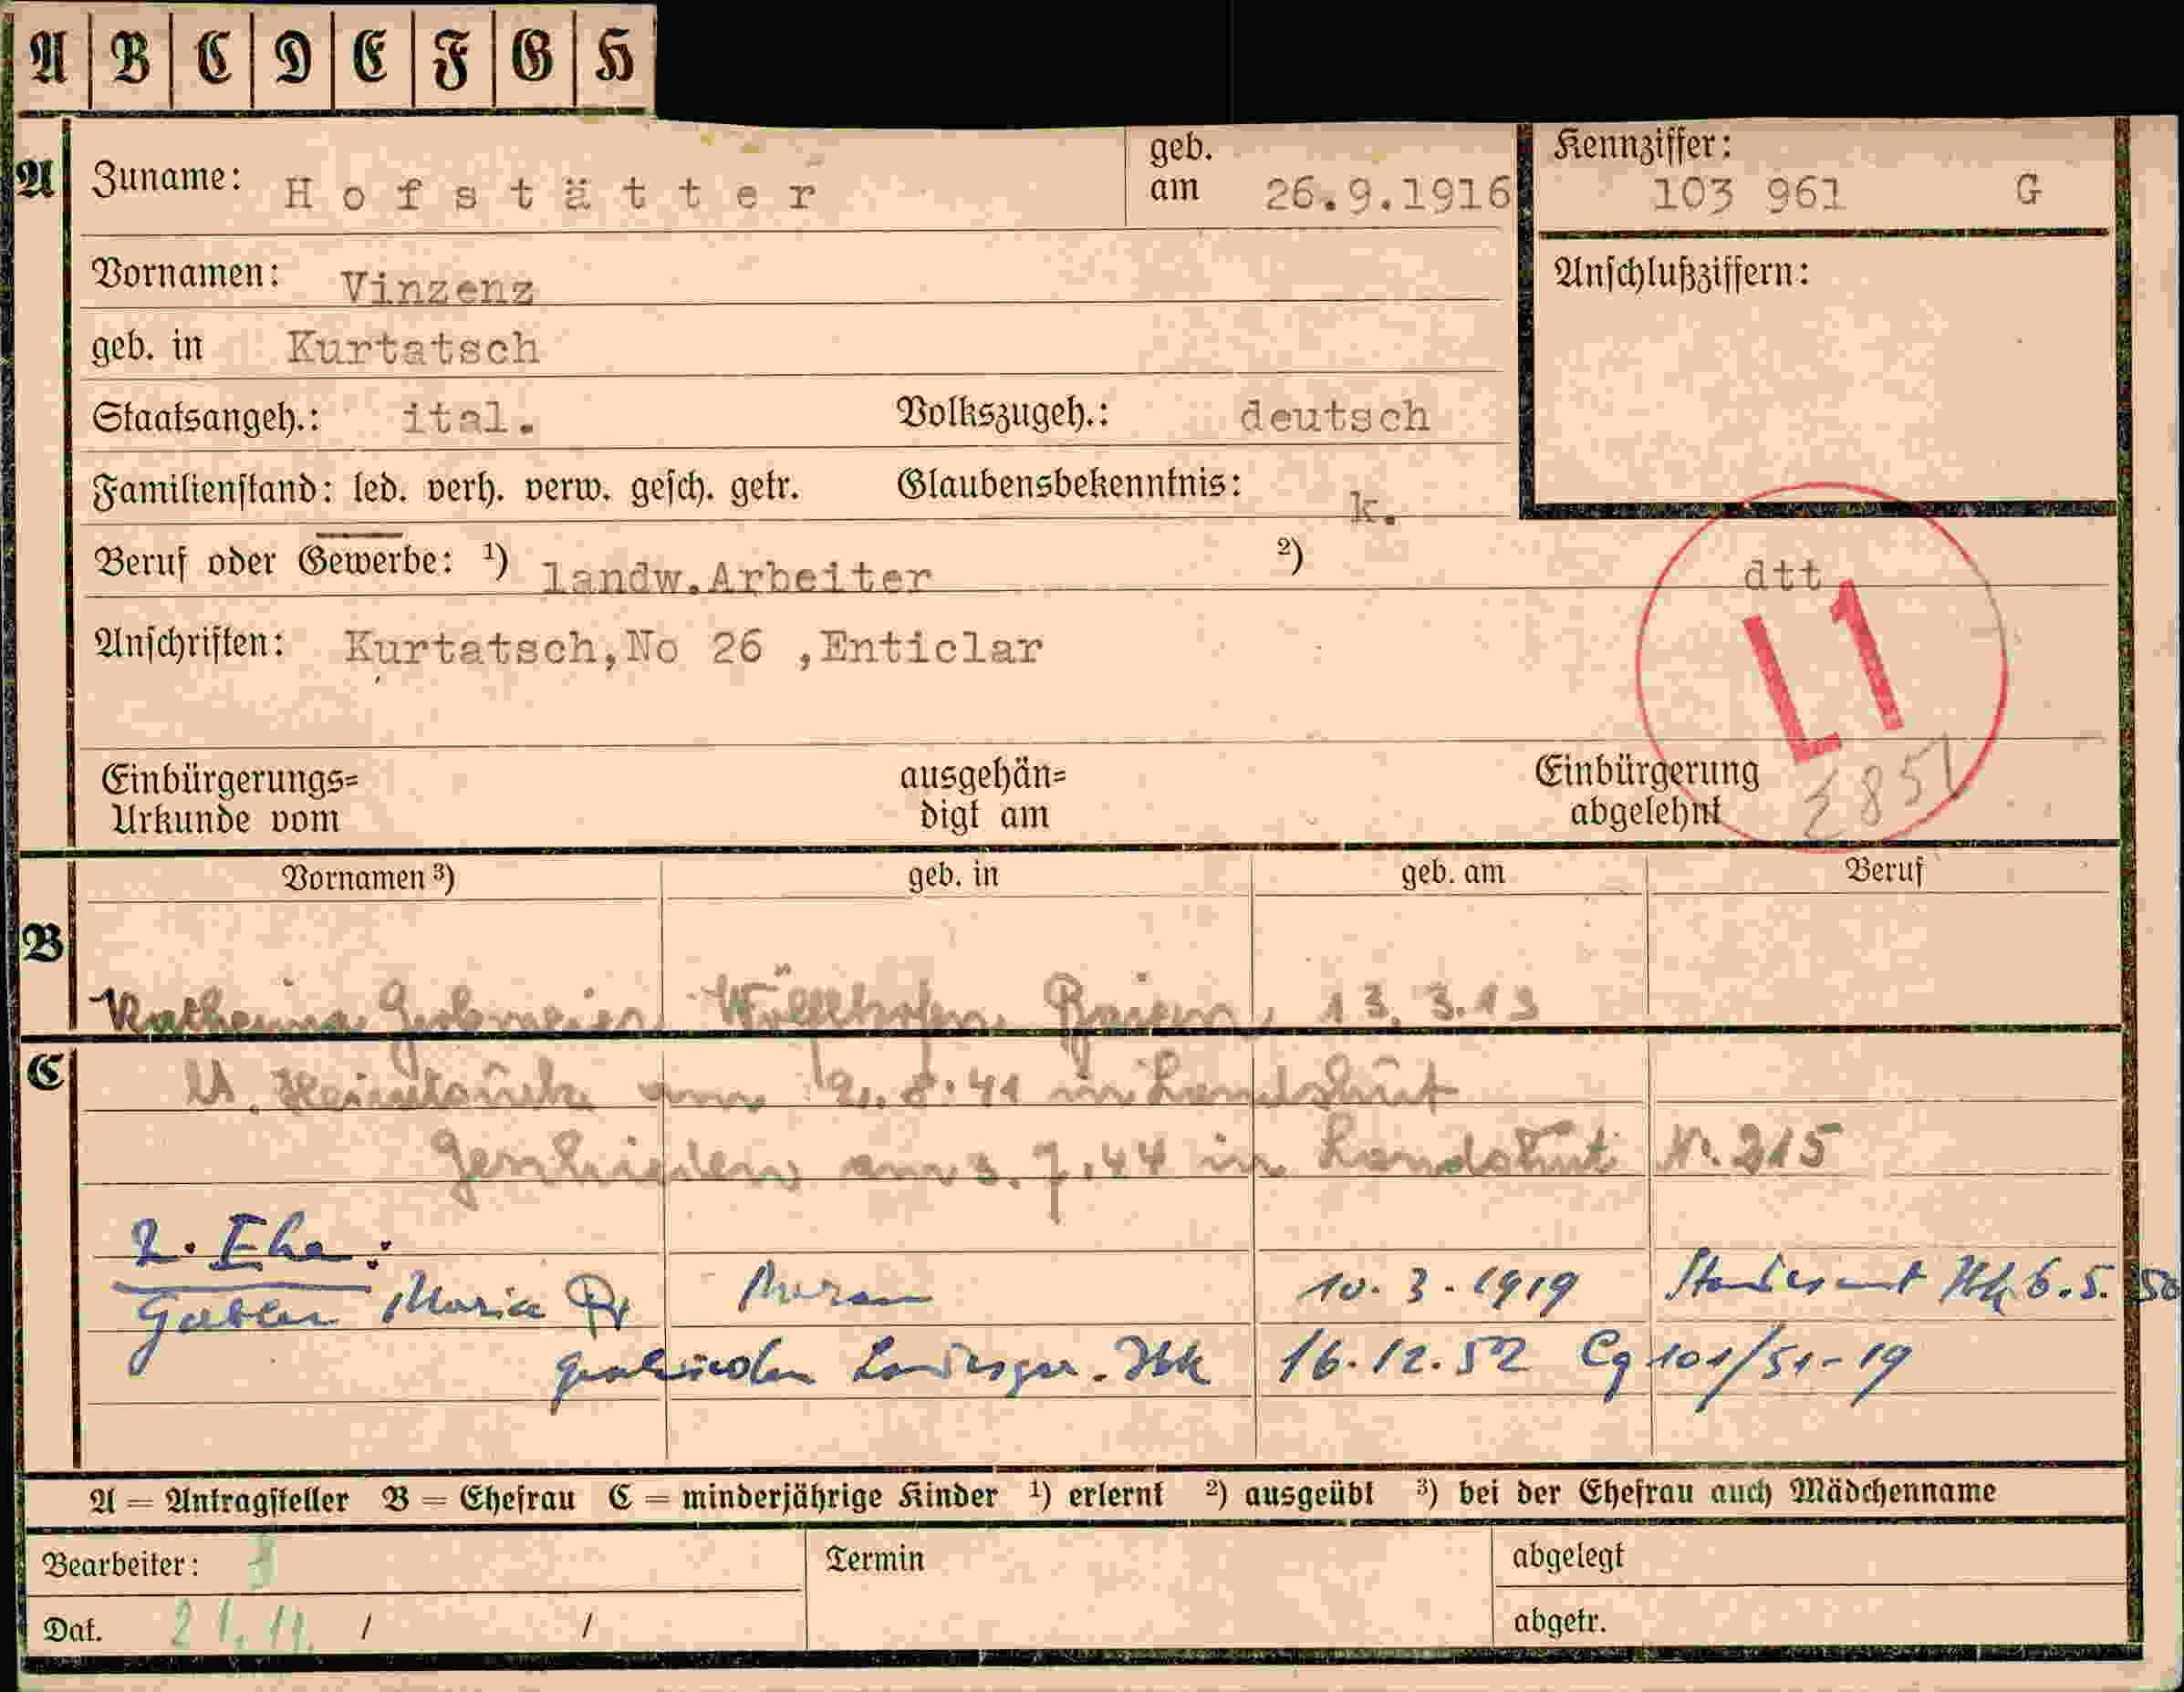 A B C D E F G H
A Zuname: Hofstätter geb. am 26.9.1916 Kennziffer: 103 961 G
Vornamen: Vinzenz Anschlußziffern:
geb. in Kurtatsch
Staatsangeh.: ital. Volkszugeh.: deutsch
Familienstand: led. verh. verw. gesch. getr. Glaubensbekenntnis: k.
Beruf oder Gewerbe: 1) landw.Arbeiter 2) dtt
L1
Anschriften: Kurtatsch,No 26 ,Enticlar
Einbürgerungs= ausgehän= Einbürgerung
Urkunde vom digt am abgelehnt
Vornamen 3) geb. in geb. am Beruf
B
Katharina 13. 3.13
C
in Landshut
Geschieden am 3. 7.44 in Landshut Nr. 215
2. Ehe:
Gabler Maria Meran 10. 3. 1919 Standesamt Ibk 6.5.50
geschieden Landesger. Ibk 16.12.52 Cg 101/51-19
A = Antragsteller B = Ehefrau C = minderjährige Kinder 1) erlernt 2) ausgeübt 3) bei der Ehefrau auch Mädchenname
Bearbeiter: Termin abgelegt
Dat. 21.11. / / abgetr.